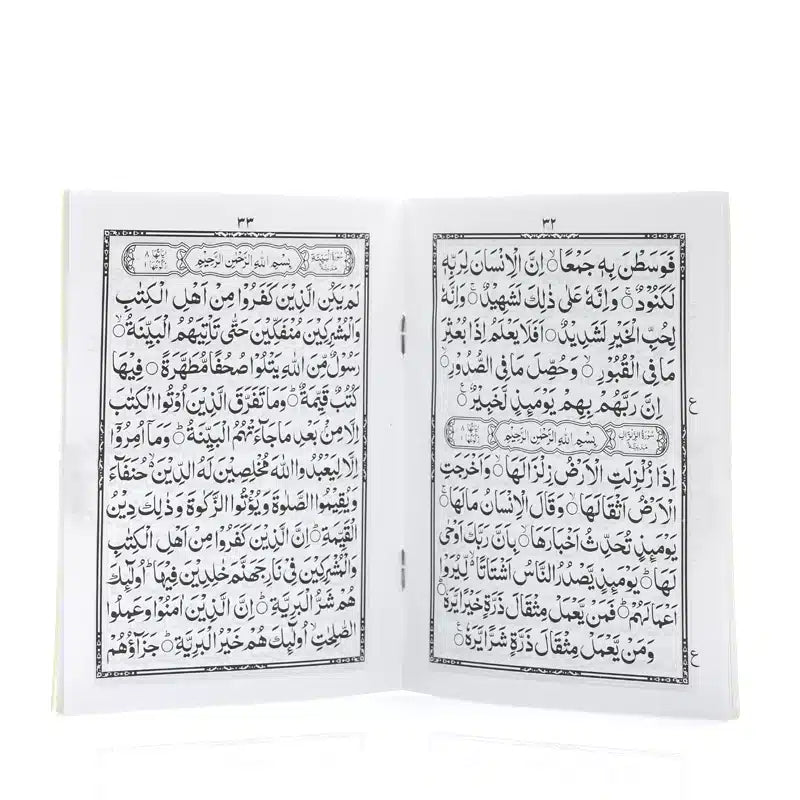 ٣٢
فَوَسَطْنَ بِهٖ جَمْعًا ۙ اِنَّ الْاِنْسَانَ لِرَبِّهٖ
لَكَنُوْدٌ ۚ وَاِنَّهٗ عَلٰى ذٰلِكَ لَشَهِيْدٌ ۚ وَاِنَّهٗ
لِحُبِّ الْخَيْرِ لَشَدِيْدٌ ؕ اَفَلَا يَعْلَمُ اِذَا بُعْثِرَ
مَا فِى الْقُبُوْرِ ۙ وَحُصِّلَ مَا فِى الصُّدُوْرِ ۙ
اِنَّ رَبَّهُمْ بِهِمْ يَوْمَىِٕذٍ لَّخَبِيْرٌ
ع
سُوْرَةُ الزِّلْزَالِ بِسْمِ اللهِ الرَّحْمٰنِ الرَّحِيْمِ
اِذَا زُلْزِلَتِ الْاَرْضُ زِلْزَالَهَا ۙ وَاَخْرَجَتِ
الْاَرْضُ اَثْقَالَهَا ۙ وَقَالَ الْاِنْسَانُ مَا لَهَا ۚ
يَوْمَىِٕذٍ تُحَدِّثُ اَخْبَارَهَا ۙ بِاَنَّ رَبَّكَ اَوْحٰى
لَهَا ؕ يَوْمَىِٕذٍ يَّصْدُرُ النَّاسُ اَشْتَاتًا ۙ لِّيُرَوْا
اَعْمَالَهُمْ ؕ فَمَنْ يَّعْمَلْ مِثْقَالَ ذَرَّةٍ خَيْرًا يَّرَهٗ ؕ
وَمَنْ يَّعْمَلْ مِثْقَالَ ذَرَّةٍ شَرًّا يَّرَهٗ
ع
٣٣
سُوْرَةُ الْبَيِّنَةِ بِسْمِ اللهِ الرَّحْمٰنِ الرَّحِيْمِ
لَمْ يَكُنِ الَّذِيْنَ كَفَرُوْا مِنْ اَهْلِ الْكِتٰبِ
وَالْمُشْرِكِيْنَ مُنْفَكِّيْنَ حَتّٰى تَاْتِيَهُمُ الْبَيِّنَةُ ۙ
رَسُوْلٌ مِّنَ اللهِ يَتْلُوْا صُحُفًا مُّطَهَّرَةً ۙ فِيْهَا
كُتُبٌ قَيِّمَةٌ ؕ وَمَا تَفَرَّقَ الَّذِيْنَ اُوْتُوا الْكِتٰبَ
اِلَّا مِنْ بَعْدِ مَا جَآءَتْهُمُ الْبَيِّنَةُ ؕ وَمَآ اُمِرُوْٓا
اِلَّا لِيَعْبُدُوا اللهَ مُخْلِصِيْنَ لَهُ الدِّيْنَ ۙ حُنَفَآءَ
وَيُقِيْمُوا الصَّلٰوةَ وَيُؤْتُوا الزَّكٰوةَ وَذٰلِكَ دِيْنُ
الْقَيِّمَةِ ؕ اِنَّ الَّذِيْنَ كَفَرُوْا مِنْ اَهْلِ الْكِتٰبِ
وَالْمُشْرِكِيْنَ فِيْ نَارِ جَهَنَّمَ خٰلِدِيْنَ فِيْهَا ؕ اُولٰٓىِٕكَ
هُمْ شَرُّ الْبَرِيَّةِ ؕ اِنَّ الَّذِيْنَ اٰمَنُوْا وَعَمِلُوا
الصّٰلِحٰتِ ۙ اُولٰٓىِٕكَ هُمْ خَيْرُ الْبَرِيَّةِ ؕ جَزَآؤُهُمْ